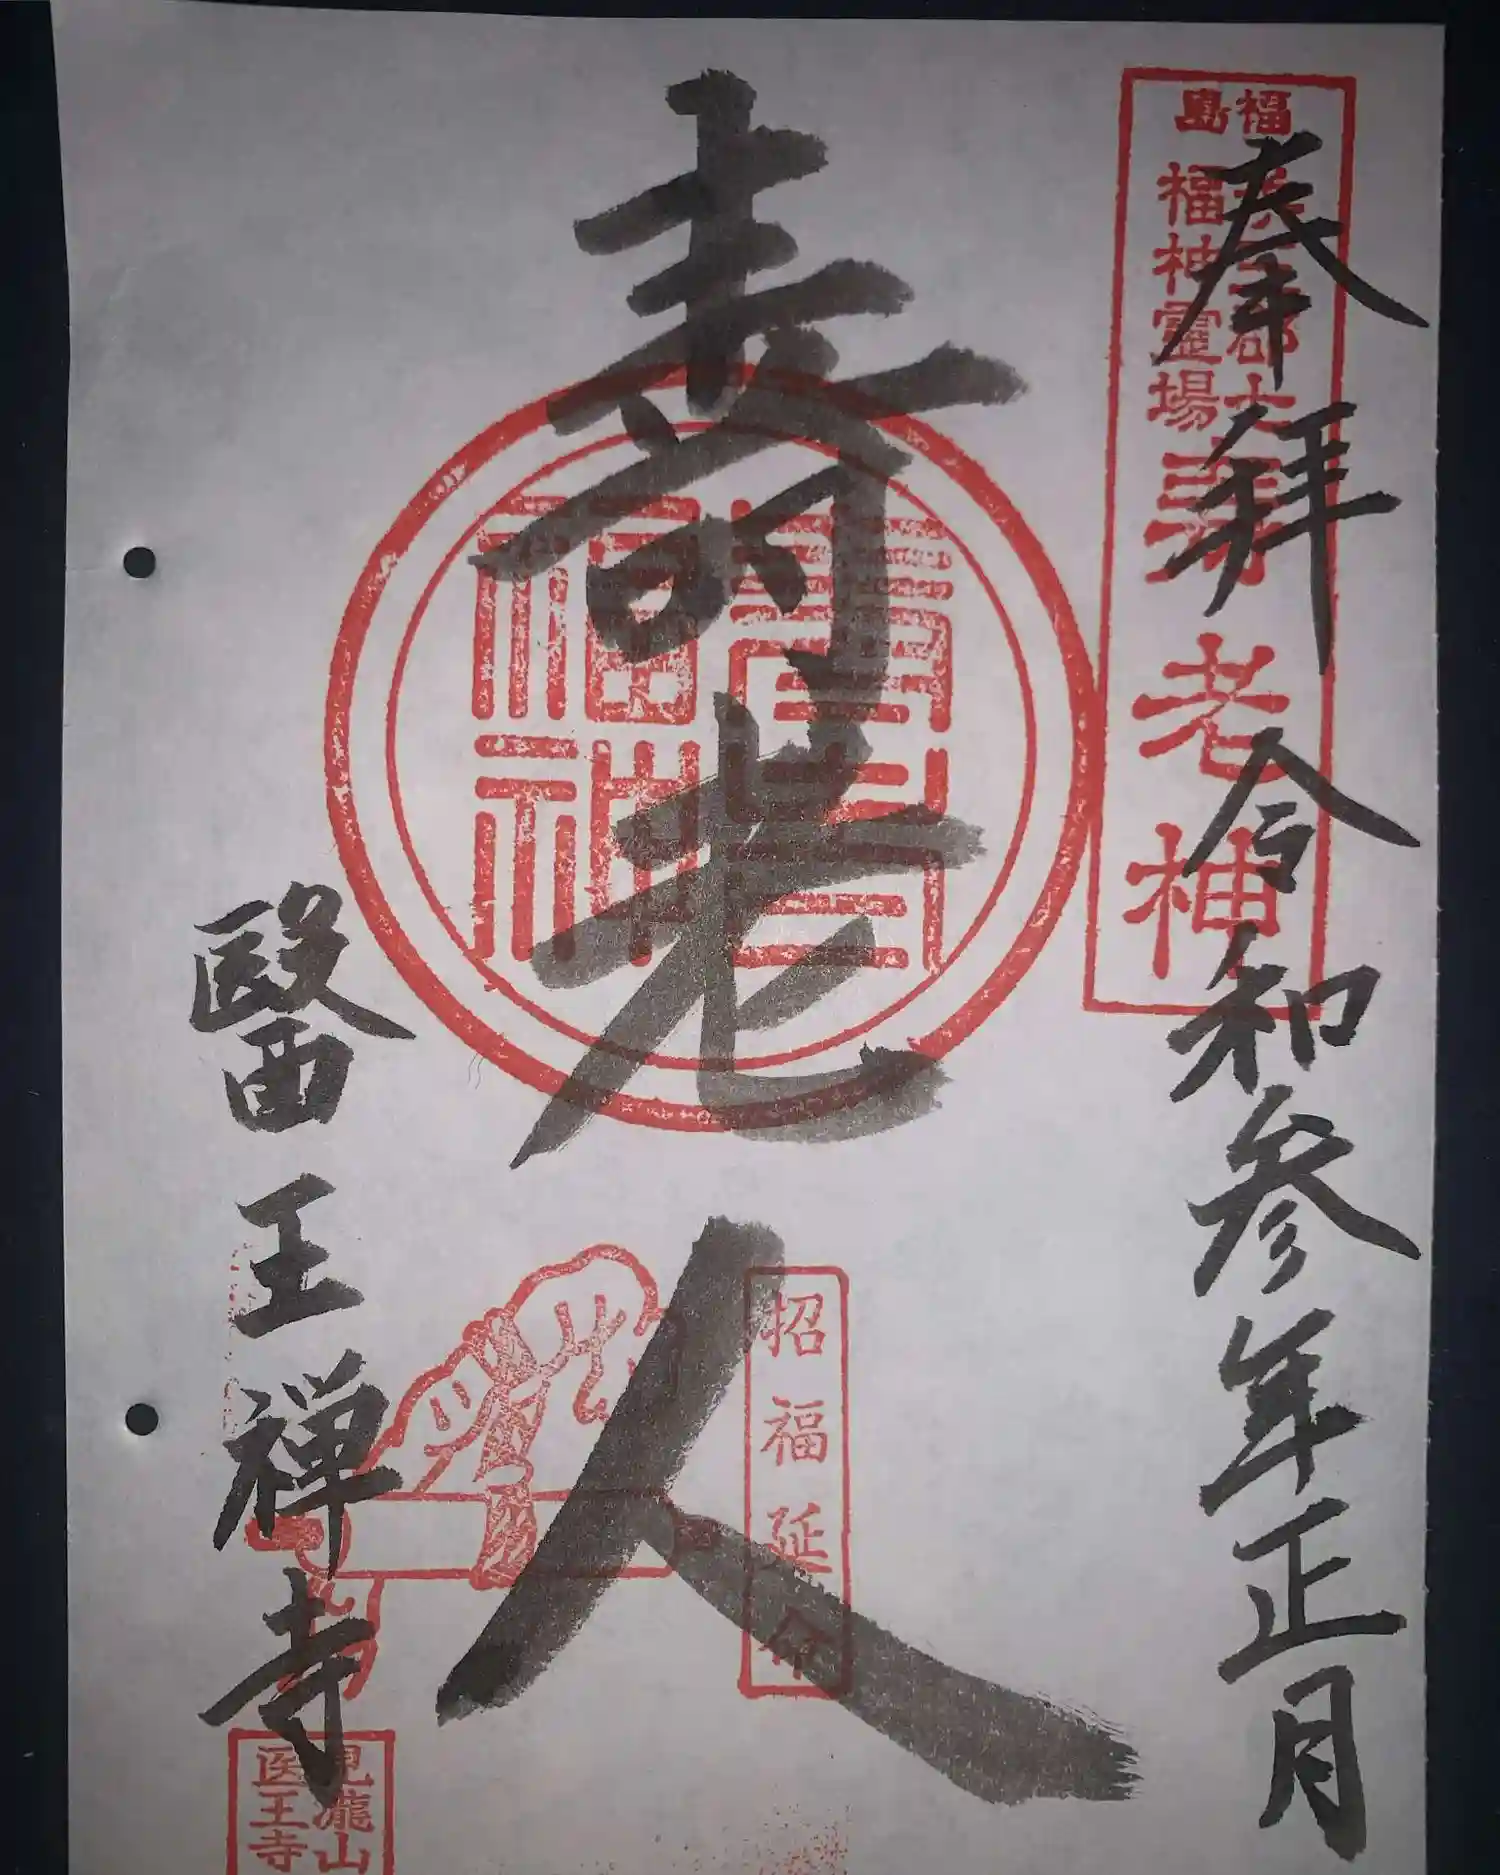 奉拝 令和参年正月
福島
福神霊場
老神
寿老人
福神
招福延命
醫王禅寺
瀧山
医王寺